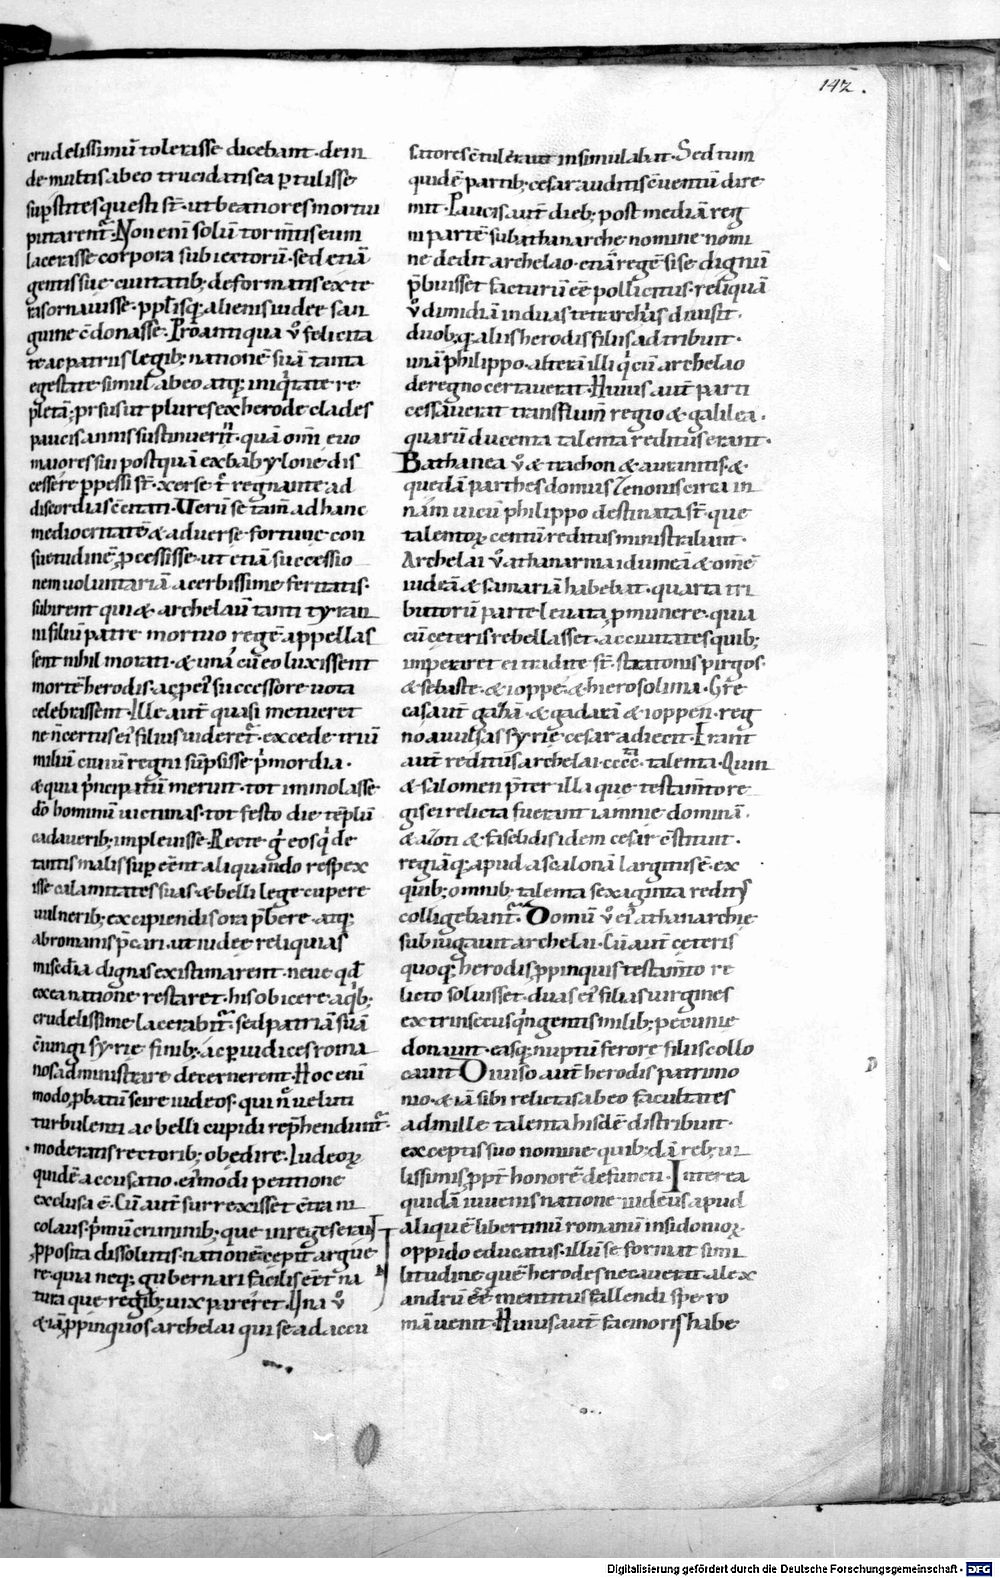 142.
crudelissimū tolerasse dicebant· dein
de multis abeo trucidatis ea ꝑtulisse
suꝑstites questi st̄· ut beatiores mortui
putarent᷑· Non eni solū torm̄tis eum
lacerasse corpora subiectorū· sed etiā
gentis sue ciuitatib; deformatis exte
ras ornauisse· ppl̄isq; alienis iudee san
guine c̄donasse· Pro antiqua v̊ felicita
te ac patriis legib; natione suā tanta
egestate simul abeo atq; iniq̇tate re
pletā; prsus ut plures ex herode clades
paucis annis sustinuerīt· quā om̄i euo
maiores sui postquā ex babylone dis
cessere ꝑpessi st̄· xerse t̄ regnante ad
discordias c̄citati· Verū se tam̄ ad hanc
mediocritatē & aduerse fortune con
suetudinē ꝓcessisse· ut etiā successio
nem uoluntariā acerbissime feritatis·
subirent qui &· archelaū tanti tyran
ni filiū patre mortuo regē appellas
sent nihil morati· & unā cū eo luxissent
mortē herodis· ac ꝑ ei᷒ successore uota
celebrassent· Ille aut̄ quasi metueret
ne īcertus ei᷒ filius uideret᷑· excede triū
miliū ciuiū regni sūpsisse p̍mordia·
& quia p̍ncipatū meruit· tot immolasse
dō hominū uictimas· tot festo die tēplū
cadauerib; impleuisse· Recte g̊ eos q̇ de
tantis malis suꝑ eēnt aliquando respex
isse calamitates suas· & belli lege cupere
uulnerib; excipiendis ora p̄bere· atq;
abromanis p̄cari· ut iudee reliquias
misedia dignas existimarent· neue qd̄
ex ea natione restaret· his obicere a q̇b;
crudelissime lacerabit᷑· sed patriā suā
c̄iungi syrie finib; ac ꝑ iudices roma
nos administrare decernerent· Hoc eni
modo ꝓbatū scire iudeos· qui n̄c ueluti
turbulenti ac belli cupidi rep̄hendunt᷑·
moderatis rectorib; obedire· Iudeoꝝ
quidē accusatio· ei᷒modi petitione
exclusa ē· Cū aut̄ surrexisset c̄tra ni
colaus· p̍mū criminib; que in reges erant
ꝓposita dissolutis· nationē cepit argue
re· quia neq; gubernari facilis eēt· na
tura que regib; uix pareret· Una v̊
& iā ꝓpinquos archelai qui se ad accu
satores c̄tulerant insimulabat· Sed tum
quidē partib; cesar auditis c̄uentū dire
mit· Paucis aut̄ dieb; post mediā reg
ni partē sub athanarche nomine nomi
ne dedit archelao· etiā regē si se dignū
p̄buisset facturū eē pollicitus· reliquā
v̊ dimidiā in duas tetrarchias diuisit·
duob; q; aliis herodis filiis adtribuit·
unā philippo· alterā illi q̇ cū archelao
de regno certauerat· Huius aut̄ parti
cesserat transflum̄ regio & galilea·
quarū ducenta talenta reditus erant·
Bathanea v̊ & trachon & auranitis· &
quedā partes domus Zenonis circa in
nam uicū philippo destinata st̄· que
talentoꝝ centū reditus ministrabant·
Archelai v̊ athanarmaidumeā & omē
iudeā & samariā habebat· quarta tri
butorū parte leuata ꝓ munere· quia
cū ceteris rebellasset· ac ciuitates quib;
imperaret ei tradite st̄· stratonis pirgos·
& sebaste· & ioppe· & hierosolima· Gre
cas aut̄ gazā & gadarā & ioppen· reg
no auulsas syrie cesar adiecit· Erant
aut̄ reditus archelai· cccc· talenta· Quin
& salomen p̄ter illa que testam̄to re
gis ei relicta fuerant iamnie dominā·
& azon & faselidis idem cesar c̄stituit·
regiāq; apud ascalonā largitus ē· ex
quib; omnib; talenta sexaginta redit᷒
colligebant᷑· Domū v̊ ei᷒ athanarchie
subiugauit archelai· Cū aut̄ ceteris
quoq; herodis ꝓpinquis testam̄to re
licto soluisset· duas ei᷒ filias uirgines
extrinsecus q̇ngentis milib; pecunie
donauit· easq; nuptū ferore filiis collo
cauit Diuiso aut̄ herodis patrimo
nio· & iā sibi relictas abeo facultates
ad mille talenta hisdē distribuit·
exceptis suo nomine quib;dā reb; ui
lissimis ꝓpt̄ honorē defuncti· Interea
quidā iuuenis natione iudeus apud
aliquē libertinū romanū in sidonioꝝ
oppido educatus· illū se format simi
litudine quē herodes necauerat alex
andrū eē mentitus fallendi spe ro
mā uenit· Huius aut̄ facinoris habe
Digitalisierung gefördert durch die Deutsche Forschungsgemeinschaft - DFG